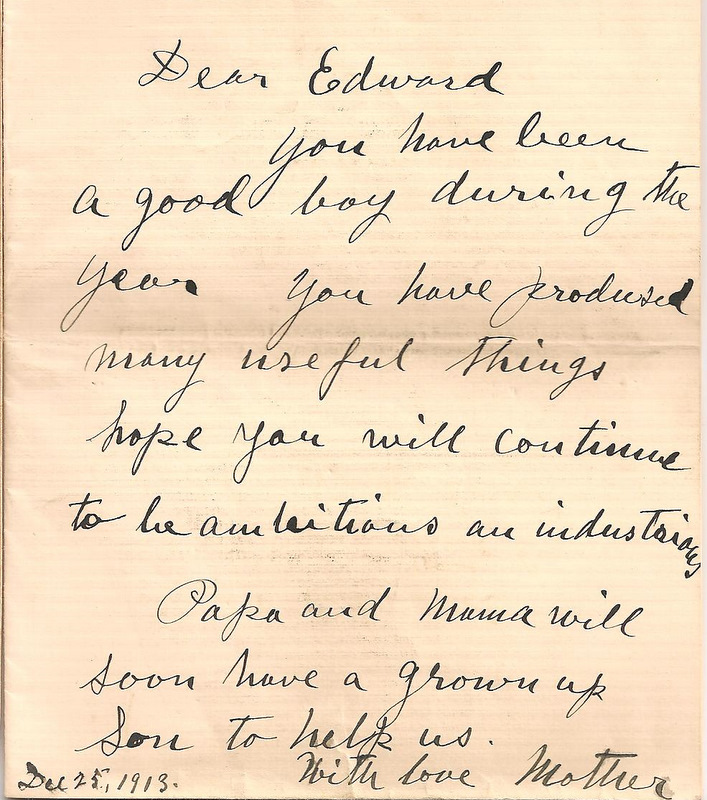 Dear Edward
you have been
a good boy during the
year you have prodused
many useful things
hope you will continue
to be ambitious an industrious
Papa and Mama will
soon have a grown up
Son to help us.
With love Mother
Dec 25, 1913.